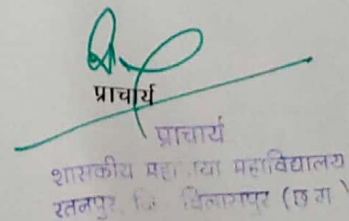 प्राचार्य
प्राचार्य
शासकीय महाविद्यालय
रतनपुर जि बिलासपुर (छ ग)